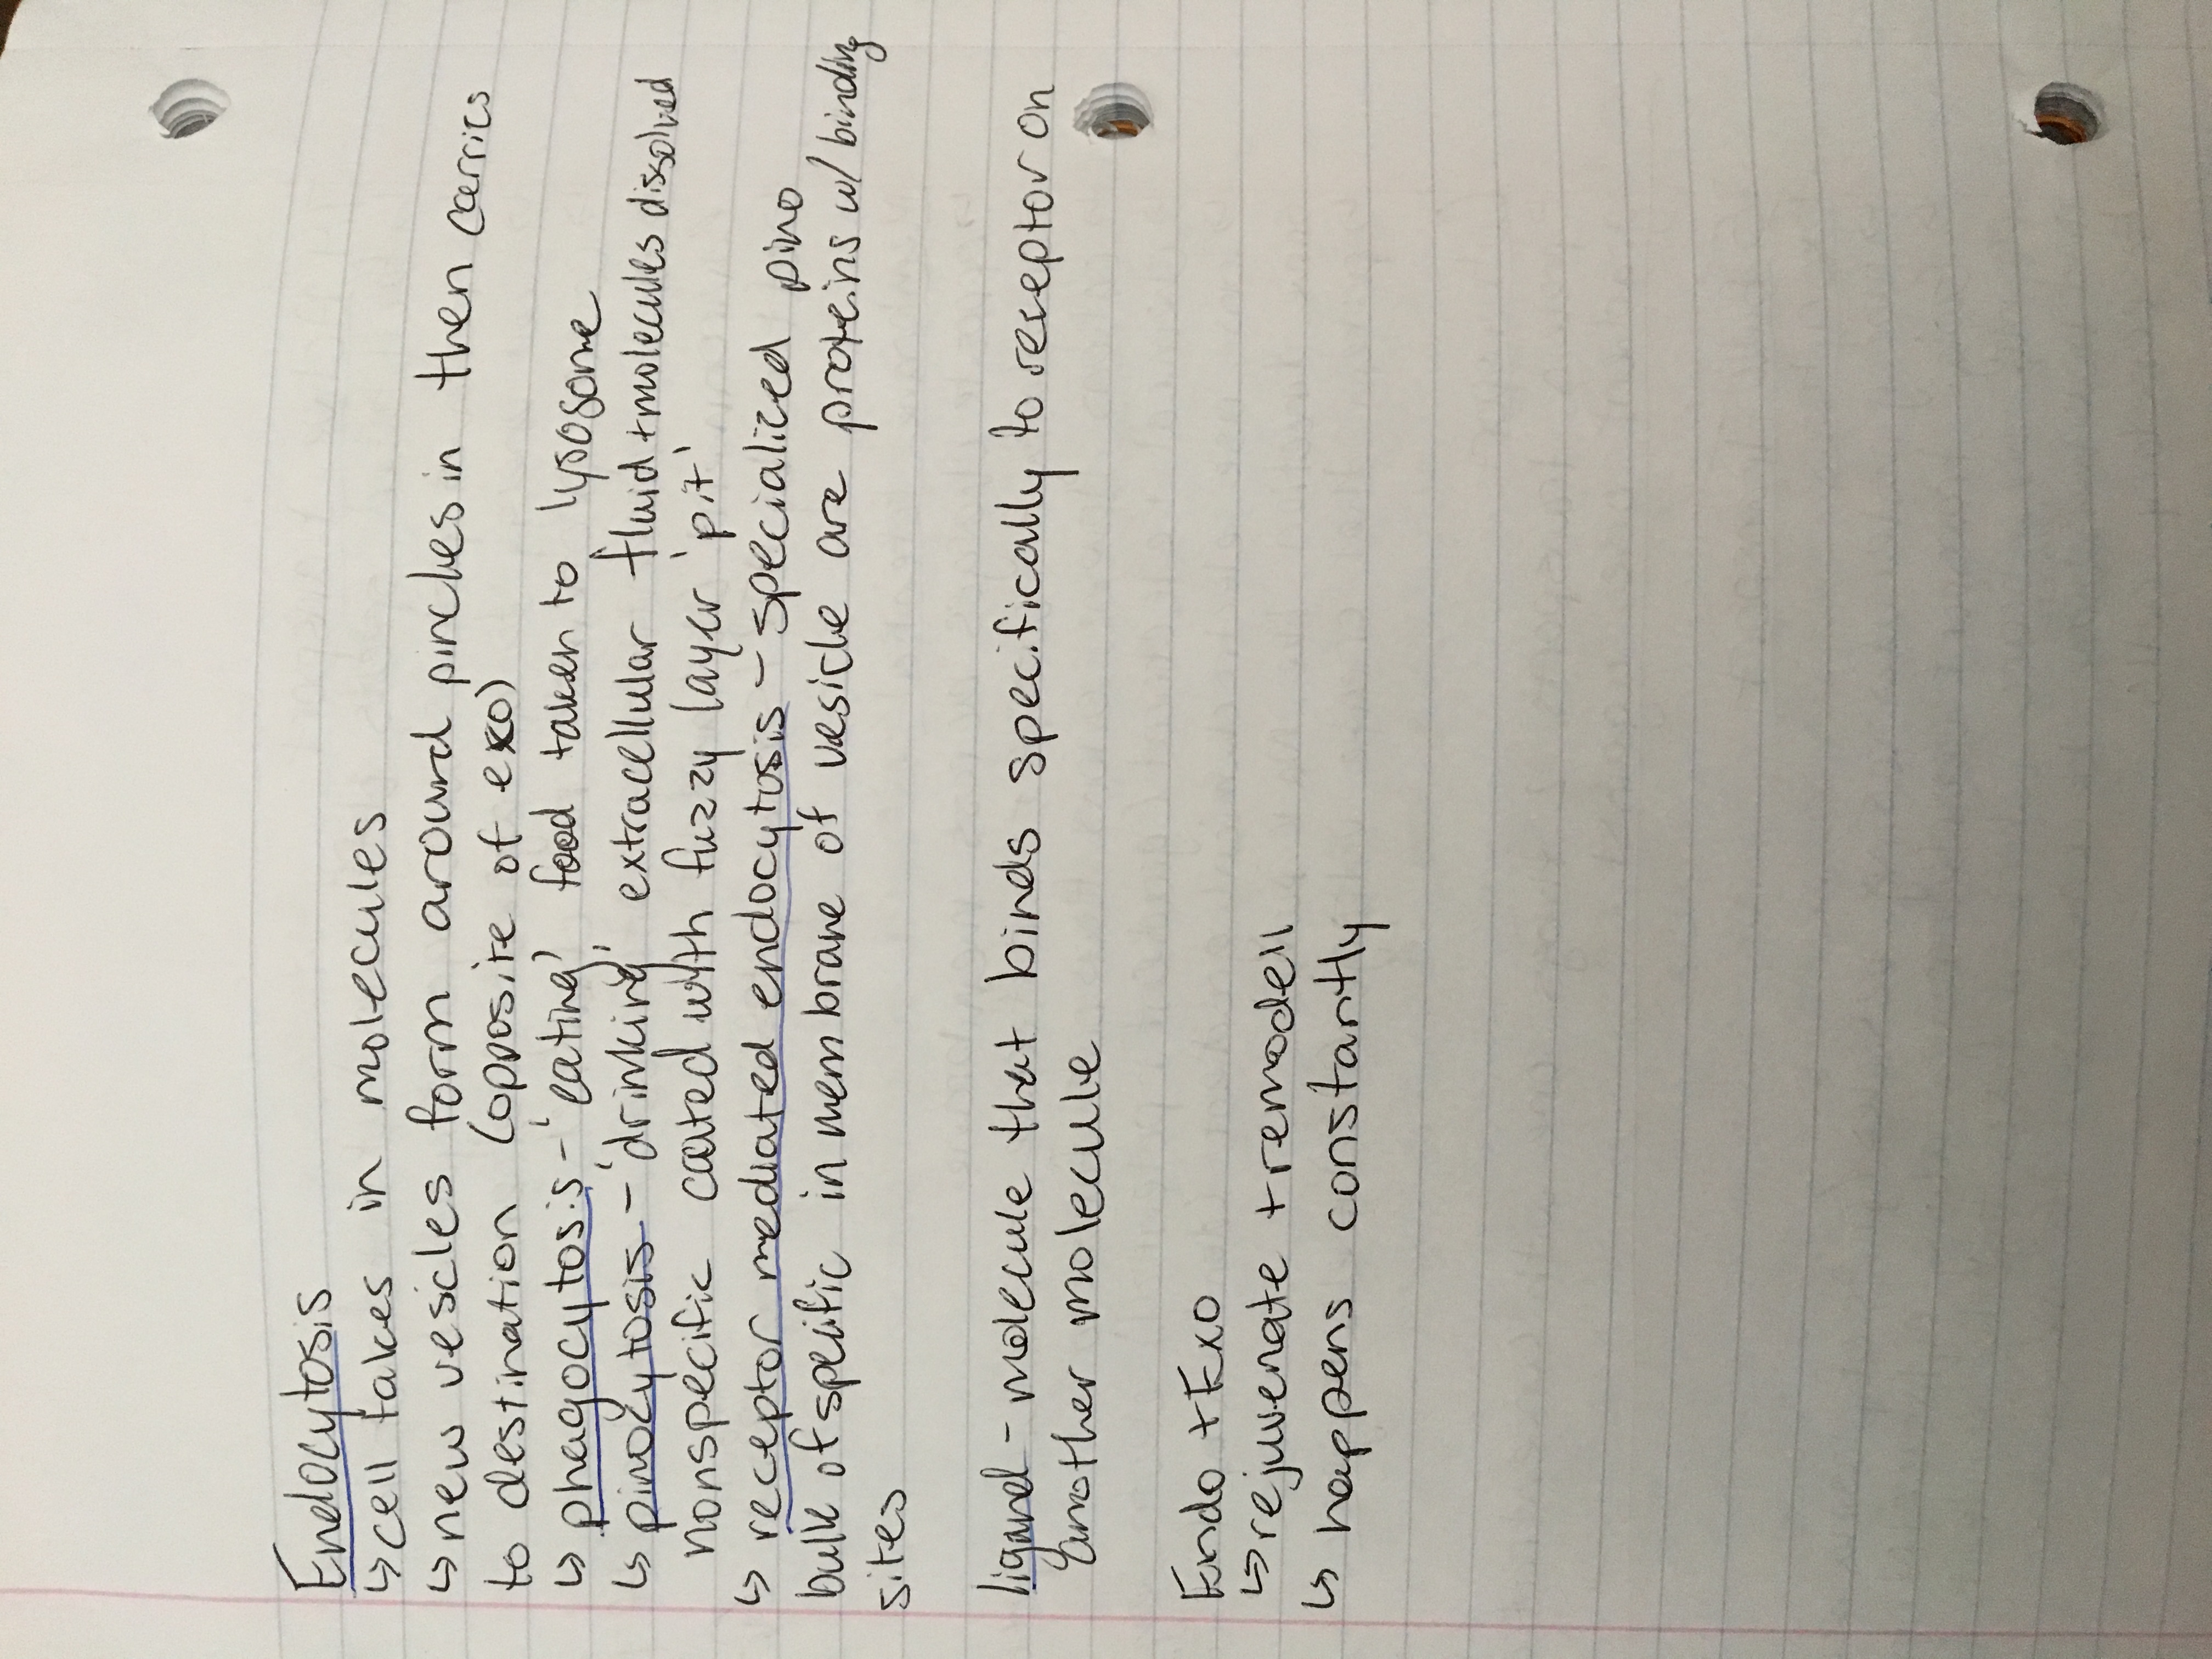 Endocytosis
↳ cell takes in molecules
↳ new vesicles form around pinches in then carries
to destination (opposite of exo)
↳ phagocytosis - 'eating' food taken to lysosome
↳ pinocytosis - 'drinking' extracellular fluid + molecules dissolved
nonspecific coated with fuzzy layer 'pit'
↳ receptor mediated endocytosis - specialized pino
bulk of specific in membrane of vesicle are proteins w/ binding
sites
ligand - molecule that binds specifically to receptor on
another molecule
Endo + Exo
↳ rejuvenate + remodell
↳ happens constantly